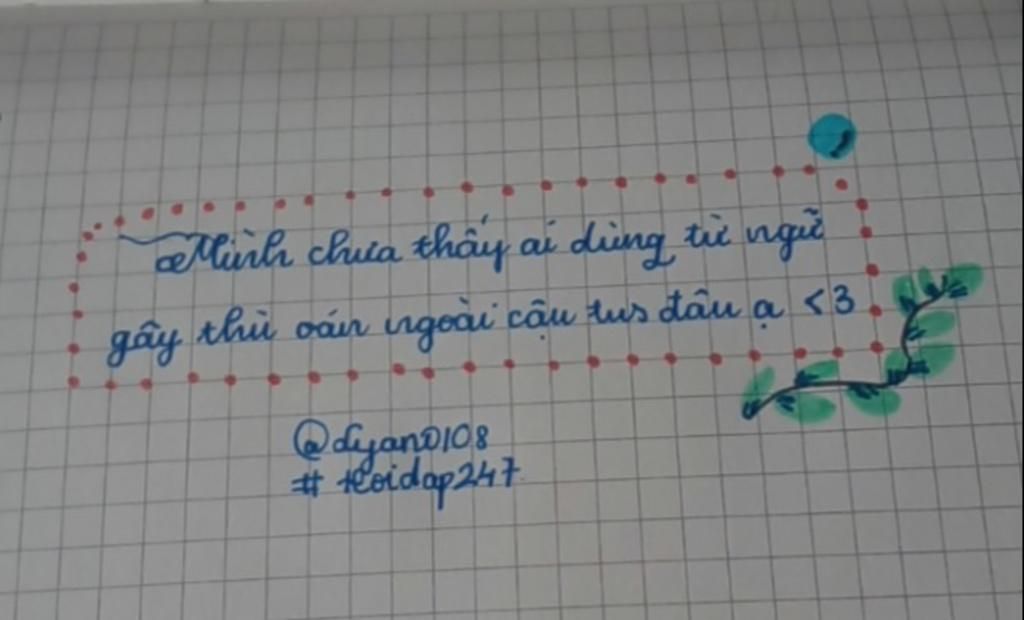 Mình chưa thấy ai dùng từ ngữ
gây thù oán ngoài cậu tus đâu ạ <3
@dyan0108
# hoidap247